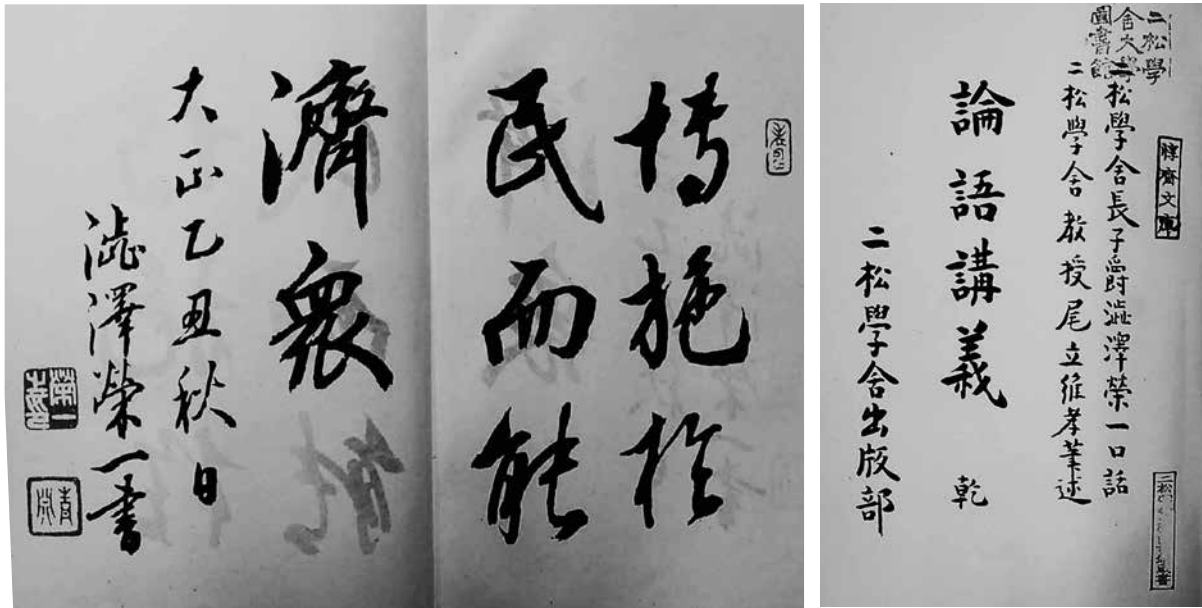 博施於
民而能
濟衆
大正乙丑秋日
澁澤榮一書
榮一
青淵
二松學
舍大學
圖書館
惇齋文庫
二松學舍長子爵澁澤榮一口話
二松學舍教授尾立維孝筆述
論語講義 乾
二松學舍出版部